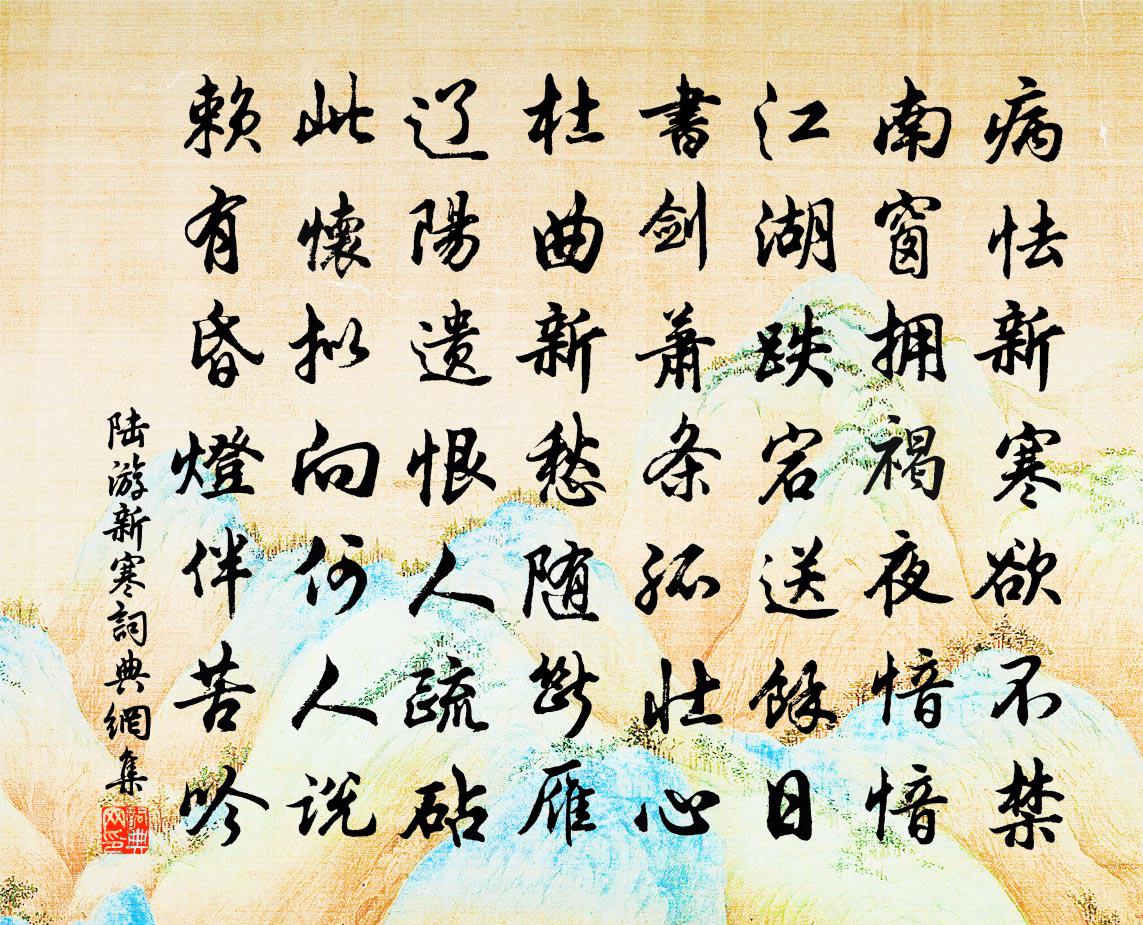 病怯新寒欲不禁
南窗拥褐夜愔愔
江湖跌宕送馀日
書剑萧条孤壮心
杜曲新愁随断雁
辽陽遗恨人疏砧
此懷拟向何人说
赖有昏燈伴苦吟
陆游新寒詞典網集